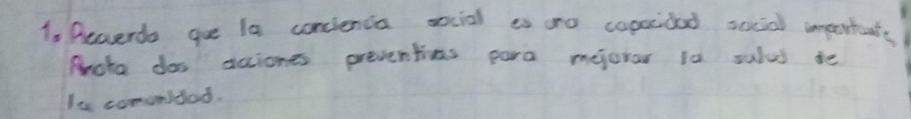 1. Recuerda que la conciencia social es una capacidad social importante,
Anota dos acciones preventivas para mejorar la salud de
la comunidad.